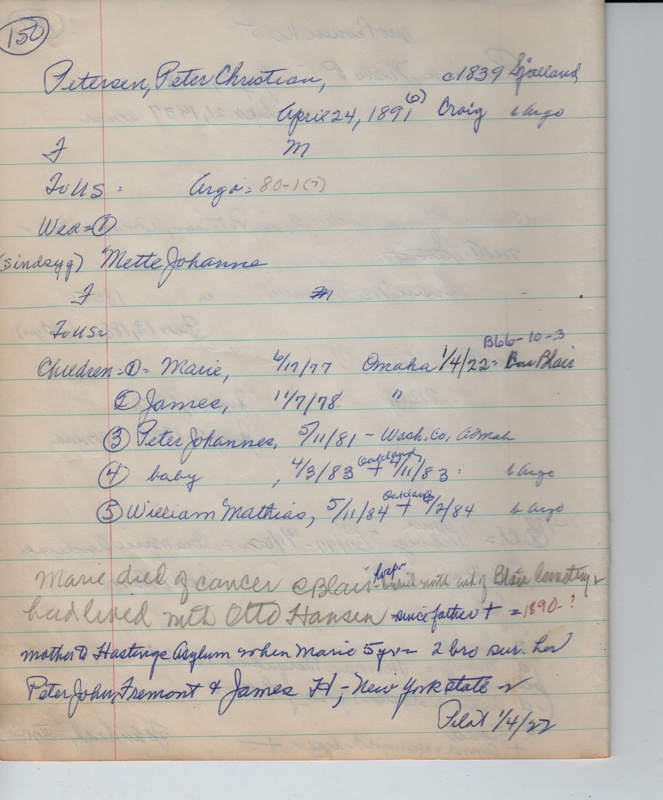 150
Petersen, Peter Christian, c1839 Sjælland
April 24, 1891 (6) Craig b Argo
F M
To US = Argo = 80-1(?)
Wed = ①
(sindsyg) Mette Johanne
F M
To US =
B66-10-3
Children = ① = Marie, 6/17/77 Omaha 1/4/22 = Blair
② James, 11/7/78 "
③ Peter Johannes, 5/11/81 - Wash. Co, Admah
④ baby, 4/3/83 Oakland + 4/11/83 b Argo
⑤ William Mathias, 5/11/84 Oakland + 8/2/84 b Argo
Marie died of cancer @ Blair hosp - of Blair Cemetery
had lived with Otto Hansen since father + = 1890-?
mother to Hastings Asylum when Marie 5 yr = 2 bro sur. her
Peter John, Fremont & James H, - New York state
Pilot 1/4/22